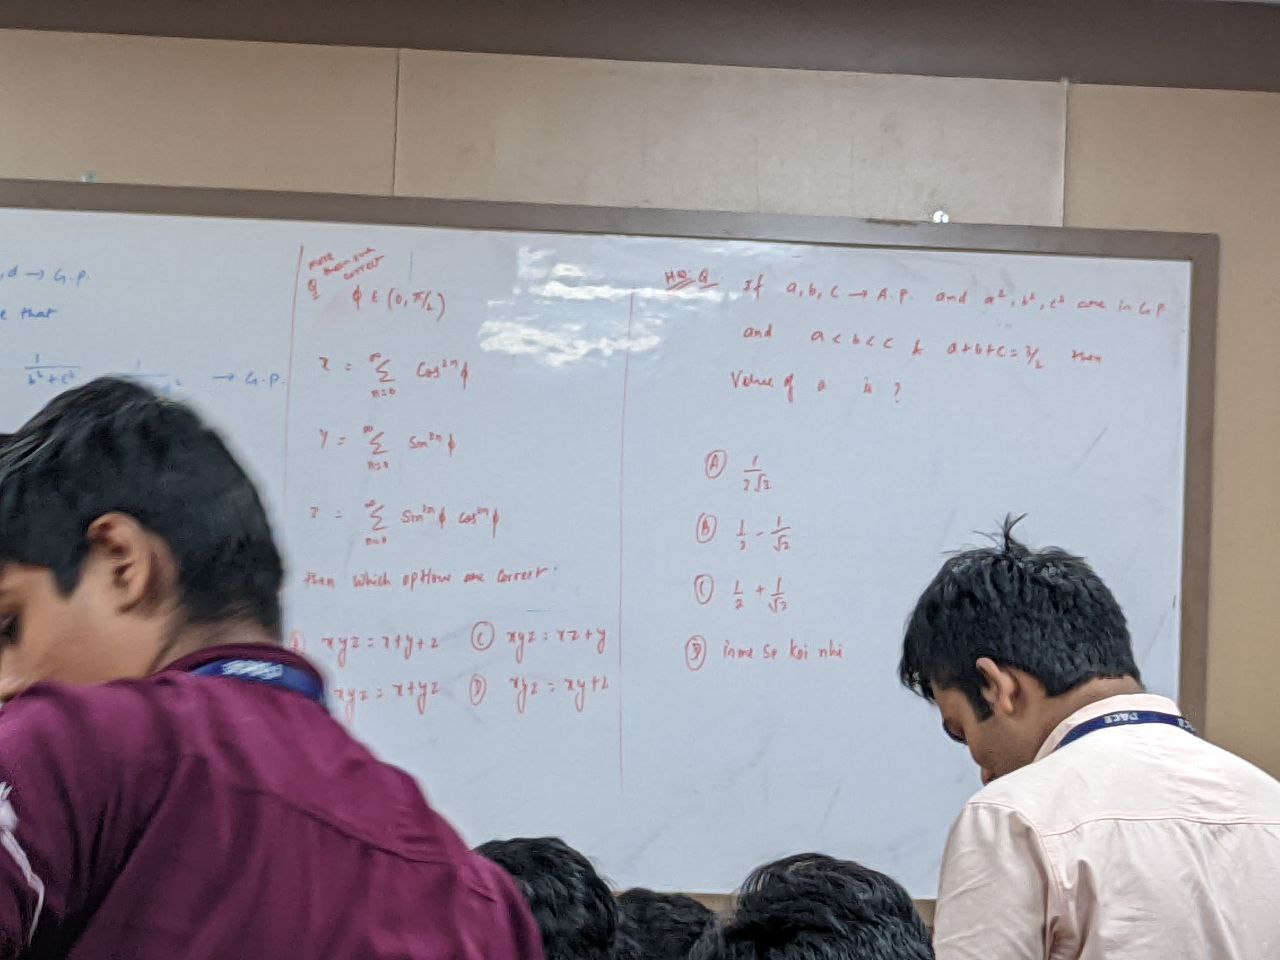 ,d → G.P.
e that
1/(b²+c²) → G.P.
more than one correct
Q ϕ ε (0, π/2)
x = ∞ Σ n=0 Cos²ⁿϕ
y = ∞ Σ n=0 Sin²ⁿϕ
z = ∞ Σ n=0 Sin²ⁿϕ cos²ⁿϕ
then which options are correct
xyz = x+y+z Ⓒ xyz = xz+y
xyz = x+yz Ⓓ xyz = xy+z
HQ. Q. If a, b, c → A.P. and a², b², c² are in G.P
and a < b < c & a+b+c = 3/2 then
Value of a is ?
Ⓐ 1/(2√2)
Ⓑ 1/2 - 1/√2
Ⓒ 1/2 + 1/√2
Ⓓ inme se koi nhi
PACE